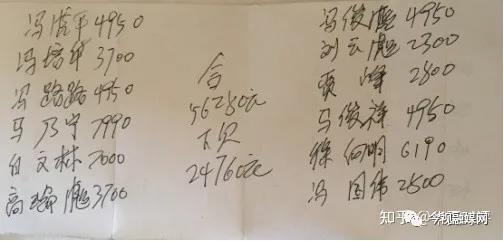 冯 4950
冯培 3700
冯路路 4950
马乃宁 7990
白文林 7000
高 彪 3700
合
56280元
下欠
24760元
马俊彪 4950
刘云彪 2300
贾峰 2800
马俊祥 4950
徐向明 6190
冯国伟 2800
知乎 今视融媒网